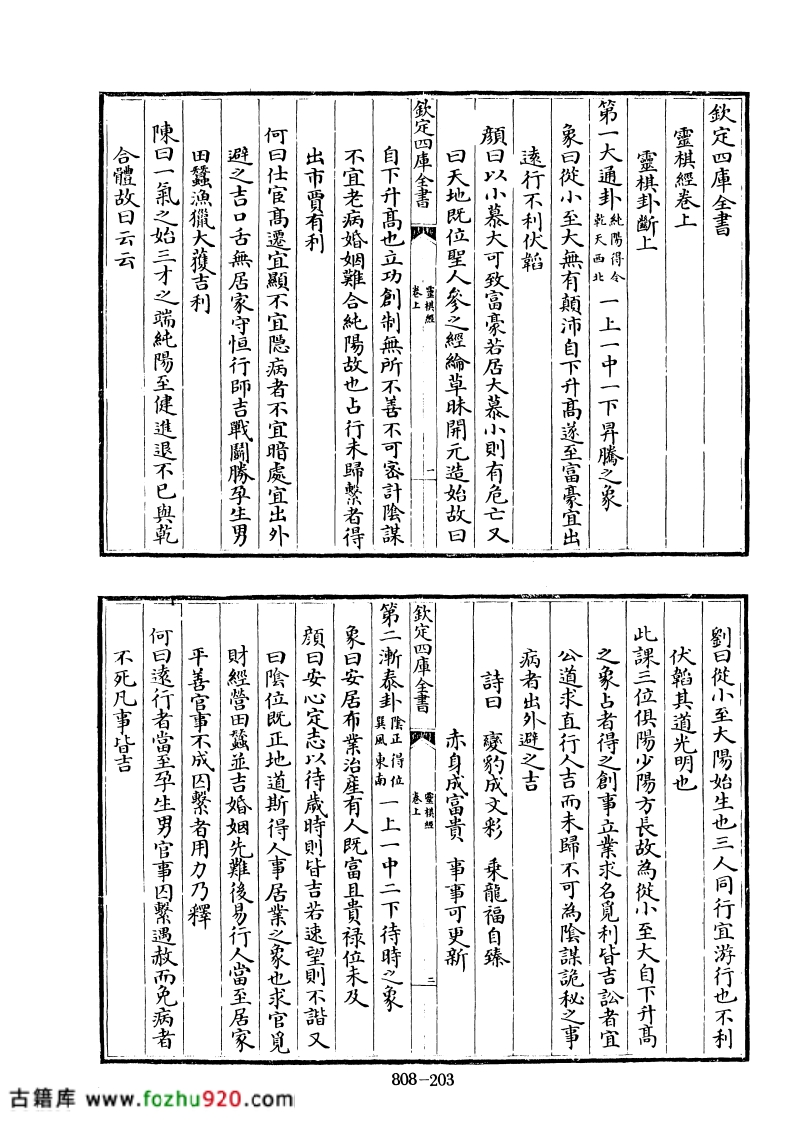 欽定四庫全書
靈棋經卷上
靈棋卦斷上
第一大通卦純陽得令乾天西北一上一中一下昇騰之象
象曰從小至大無有顛沛自下升髙遂至富豪宜出
逺行不利伏韜
顔曰以小慕大可致富豪若居大慕小則有危亡又
曰天地既位聖人參之經綸草昧開元造始故曰
欽定四庫全書
靈棋經
卷上
一
自下升髙也立功創制無所不善不可密計陰謀
不宜老病婚姻難合純陽故也占行未歸繫者得
出市賈有利
何曰仕宦髙遷宜顯不宜隐病者不宜暗處宜出外
避之吉口舌無居家守恒行師吉戰鬭勝孕生男
田蠶漁獵大獲吉利
陳曰一氣之始三才之端純陽至健進退不已與乾
合體故曰云云
劉曰從小至大陽始生也三人同行宜游行也不利
伏韜其道光明也
此課三位俱陽少陽方長故為從小至大自下升髙
之象占者得之創事立業求名覓利皆吉訟者宜
公道求直行人吉而未歸不可為陰謀詭秘之事
病者出外避之吉
詩曰 變豹成文彩 乘龍福自臻
赤身成富貴 事事可更新
欽定四庫全書
靈棋經
卷上
二
第二漸泰卦陰正得位巽風東南一上一中二下待時之象
象曰安居布業治產有人既富且貴禄位未及
顔曰安心定志以待歲時則皆吉若速望則不諧又
曰陰位既正地道斯得人事居業之象也求官覓
財經營田蠶並吉婚姻先難後易行人當至居家
平善官事不成囚繫者用力乃釋
何曰逺行者當至孕生男官事囚繫遇赦而免病者
不死凡事皆吉
808-203
古籍库 www.fozhu920.com